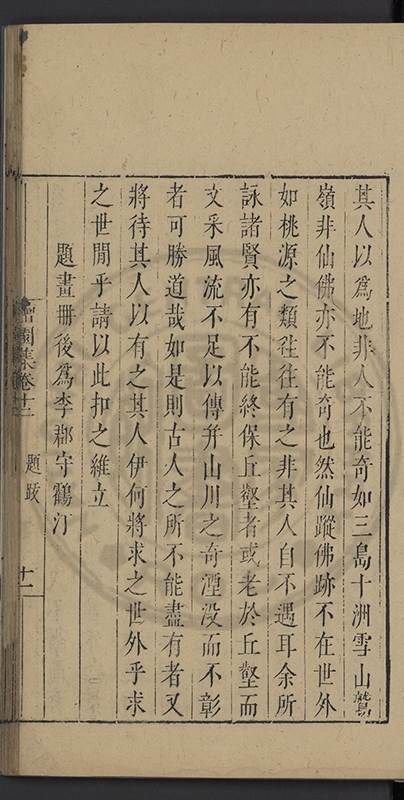 其人以爲地非人不能奇如三島十洲雪山鷲
嶺非仙佛亦不能奇也然仙蹤佛跡不在世外
如桃源之類往往有之非其人自不遇耳余所
詠諸賢亦有不能終保丘壑者或老於丘壑而
文采風流不足以傳并山川之奇湮没而不彰
者可勝道哉如是則古人之所不能盡有者又
將待其人以有之其人伊何將求之世外乎求
之世間乎請以此扣之維立
題畫册後爲李郡守鶴汀
集卷十二 題跋 十一